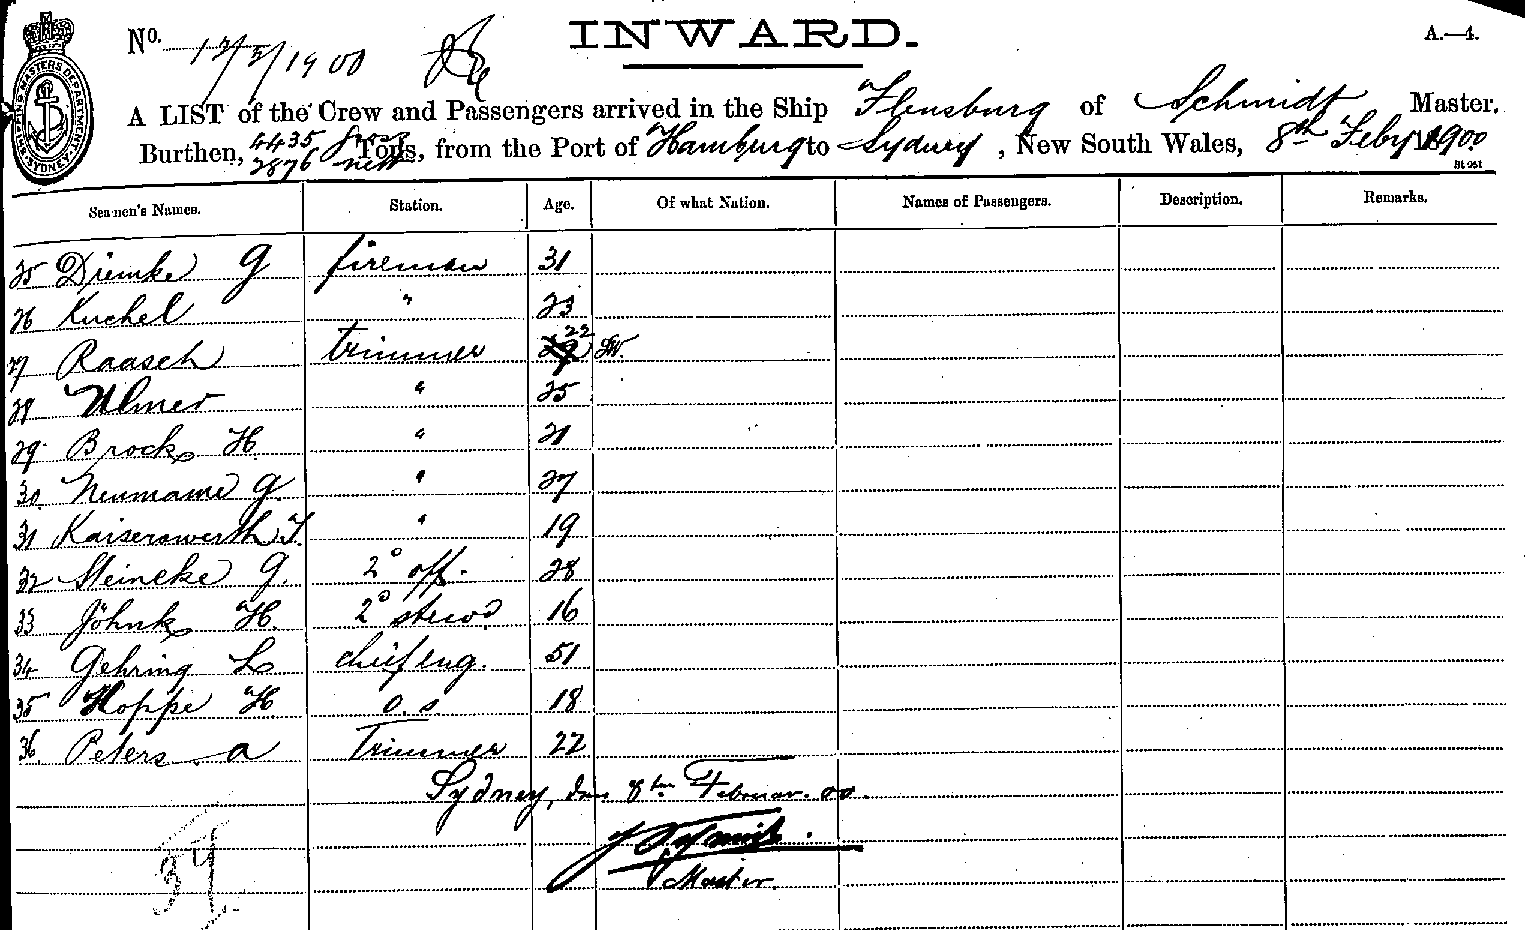 INWARD.
No. 12/2/1900
A.—4.
A LIST of the Crew and Passengers arrived in the Ship Flensburg of Schmidt Master.
Burthen, 4435 gross 2876 nett Tons, from the Port of Hamburg to Sydney, New South Wales, 8th Feby 1900
Seamen's Names. Station. Age. Of what Nation. Names of Passengers. Description. Remarks.
25 Diemke G fireman 31
26 Kuchel " 23
27 Raasch trimmer 22
28 Ulmer " 25
29 Brock H. " 21
30 Neumann G. " 27
31 Kaiserswerth T. " 19
32 Steincke G. 2° off. 28
33 Jöhnk H. 2° stewd 16
34 Gehring L chief eng. 51
35 Hoppe H. o.s 18
36. Peters a Trimmer 22
Sydney, den 8ten Februar. 00.
Master.